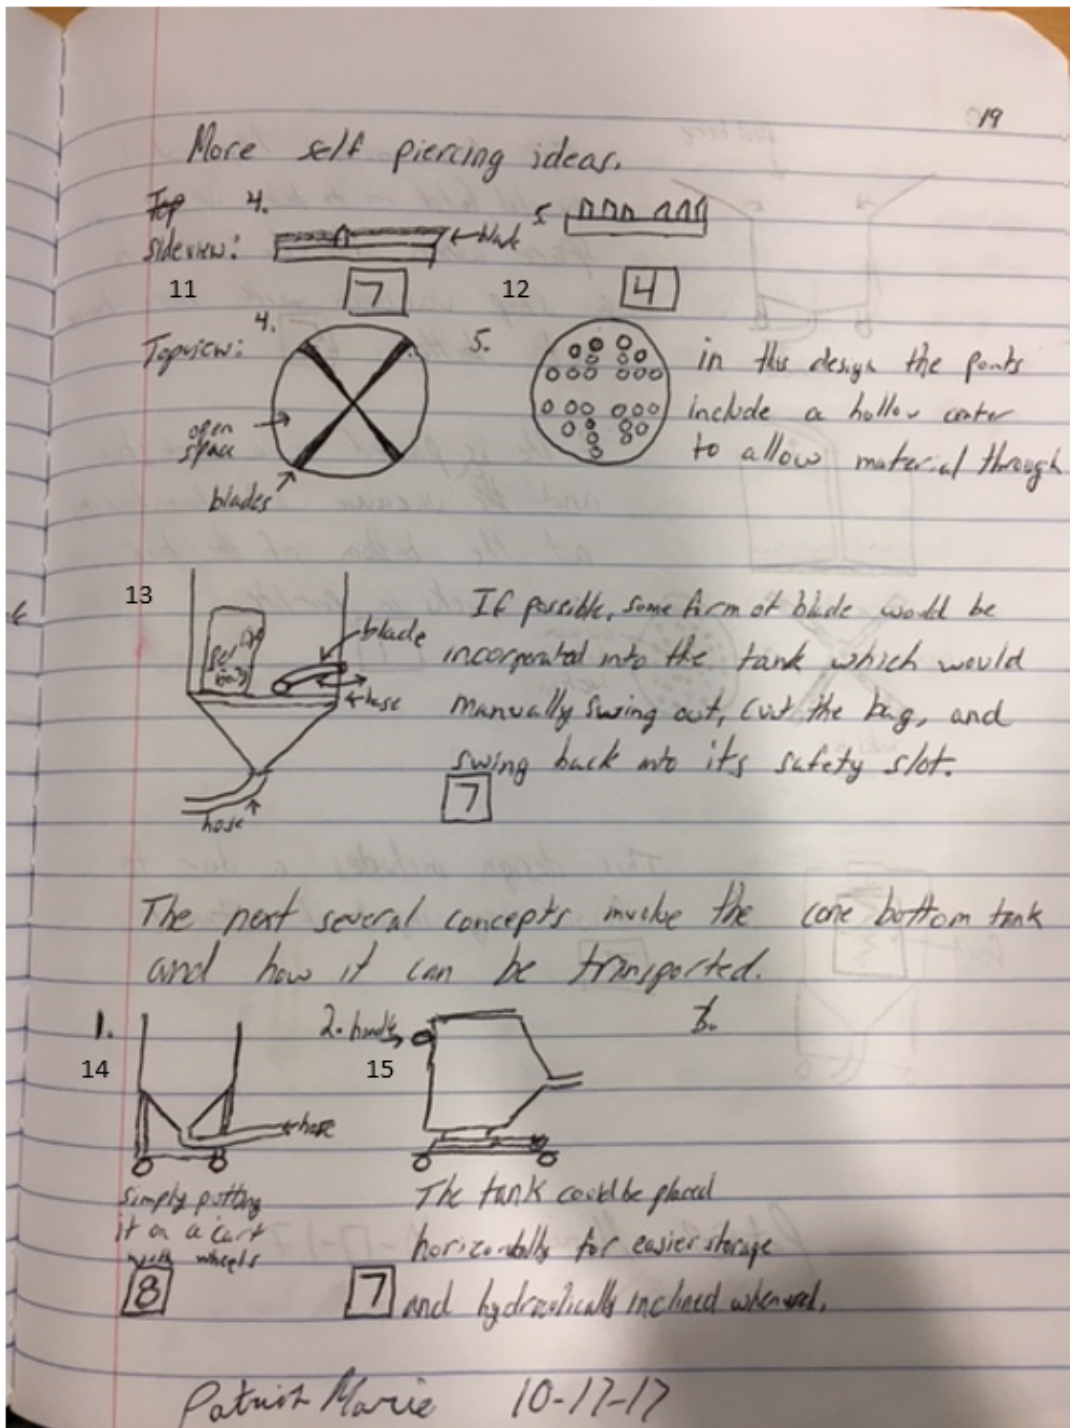 19
More self piercing ideas.
Top 4. 5.
side view: ← blade
11 7 12 4
Topview: 4. 5. in this design the ponts
open space include a hollow center
blades to allow material through
13 If possible, some form of blade would be
blade incorperated into the tank which would
bag manually swing out, cut the bag, and
swing back into its safety slot.
7
hose
The next several concepts involve the cone bottom tank
and how it can be transported.
1. 2. handle 3.
14 15
hose
simply putting
it on a cart
with wheels
8
The tank could be placed
horizontally for easier storage
7 and hydraulically inclined when used.
Patrick Marie 10-17-17